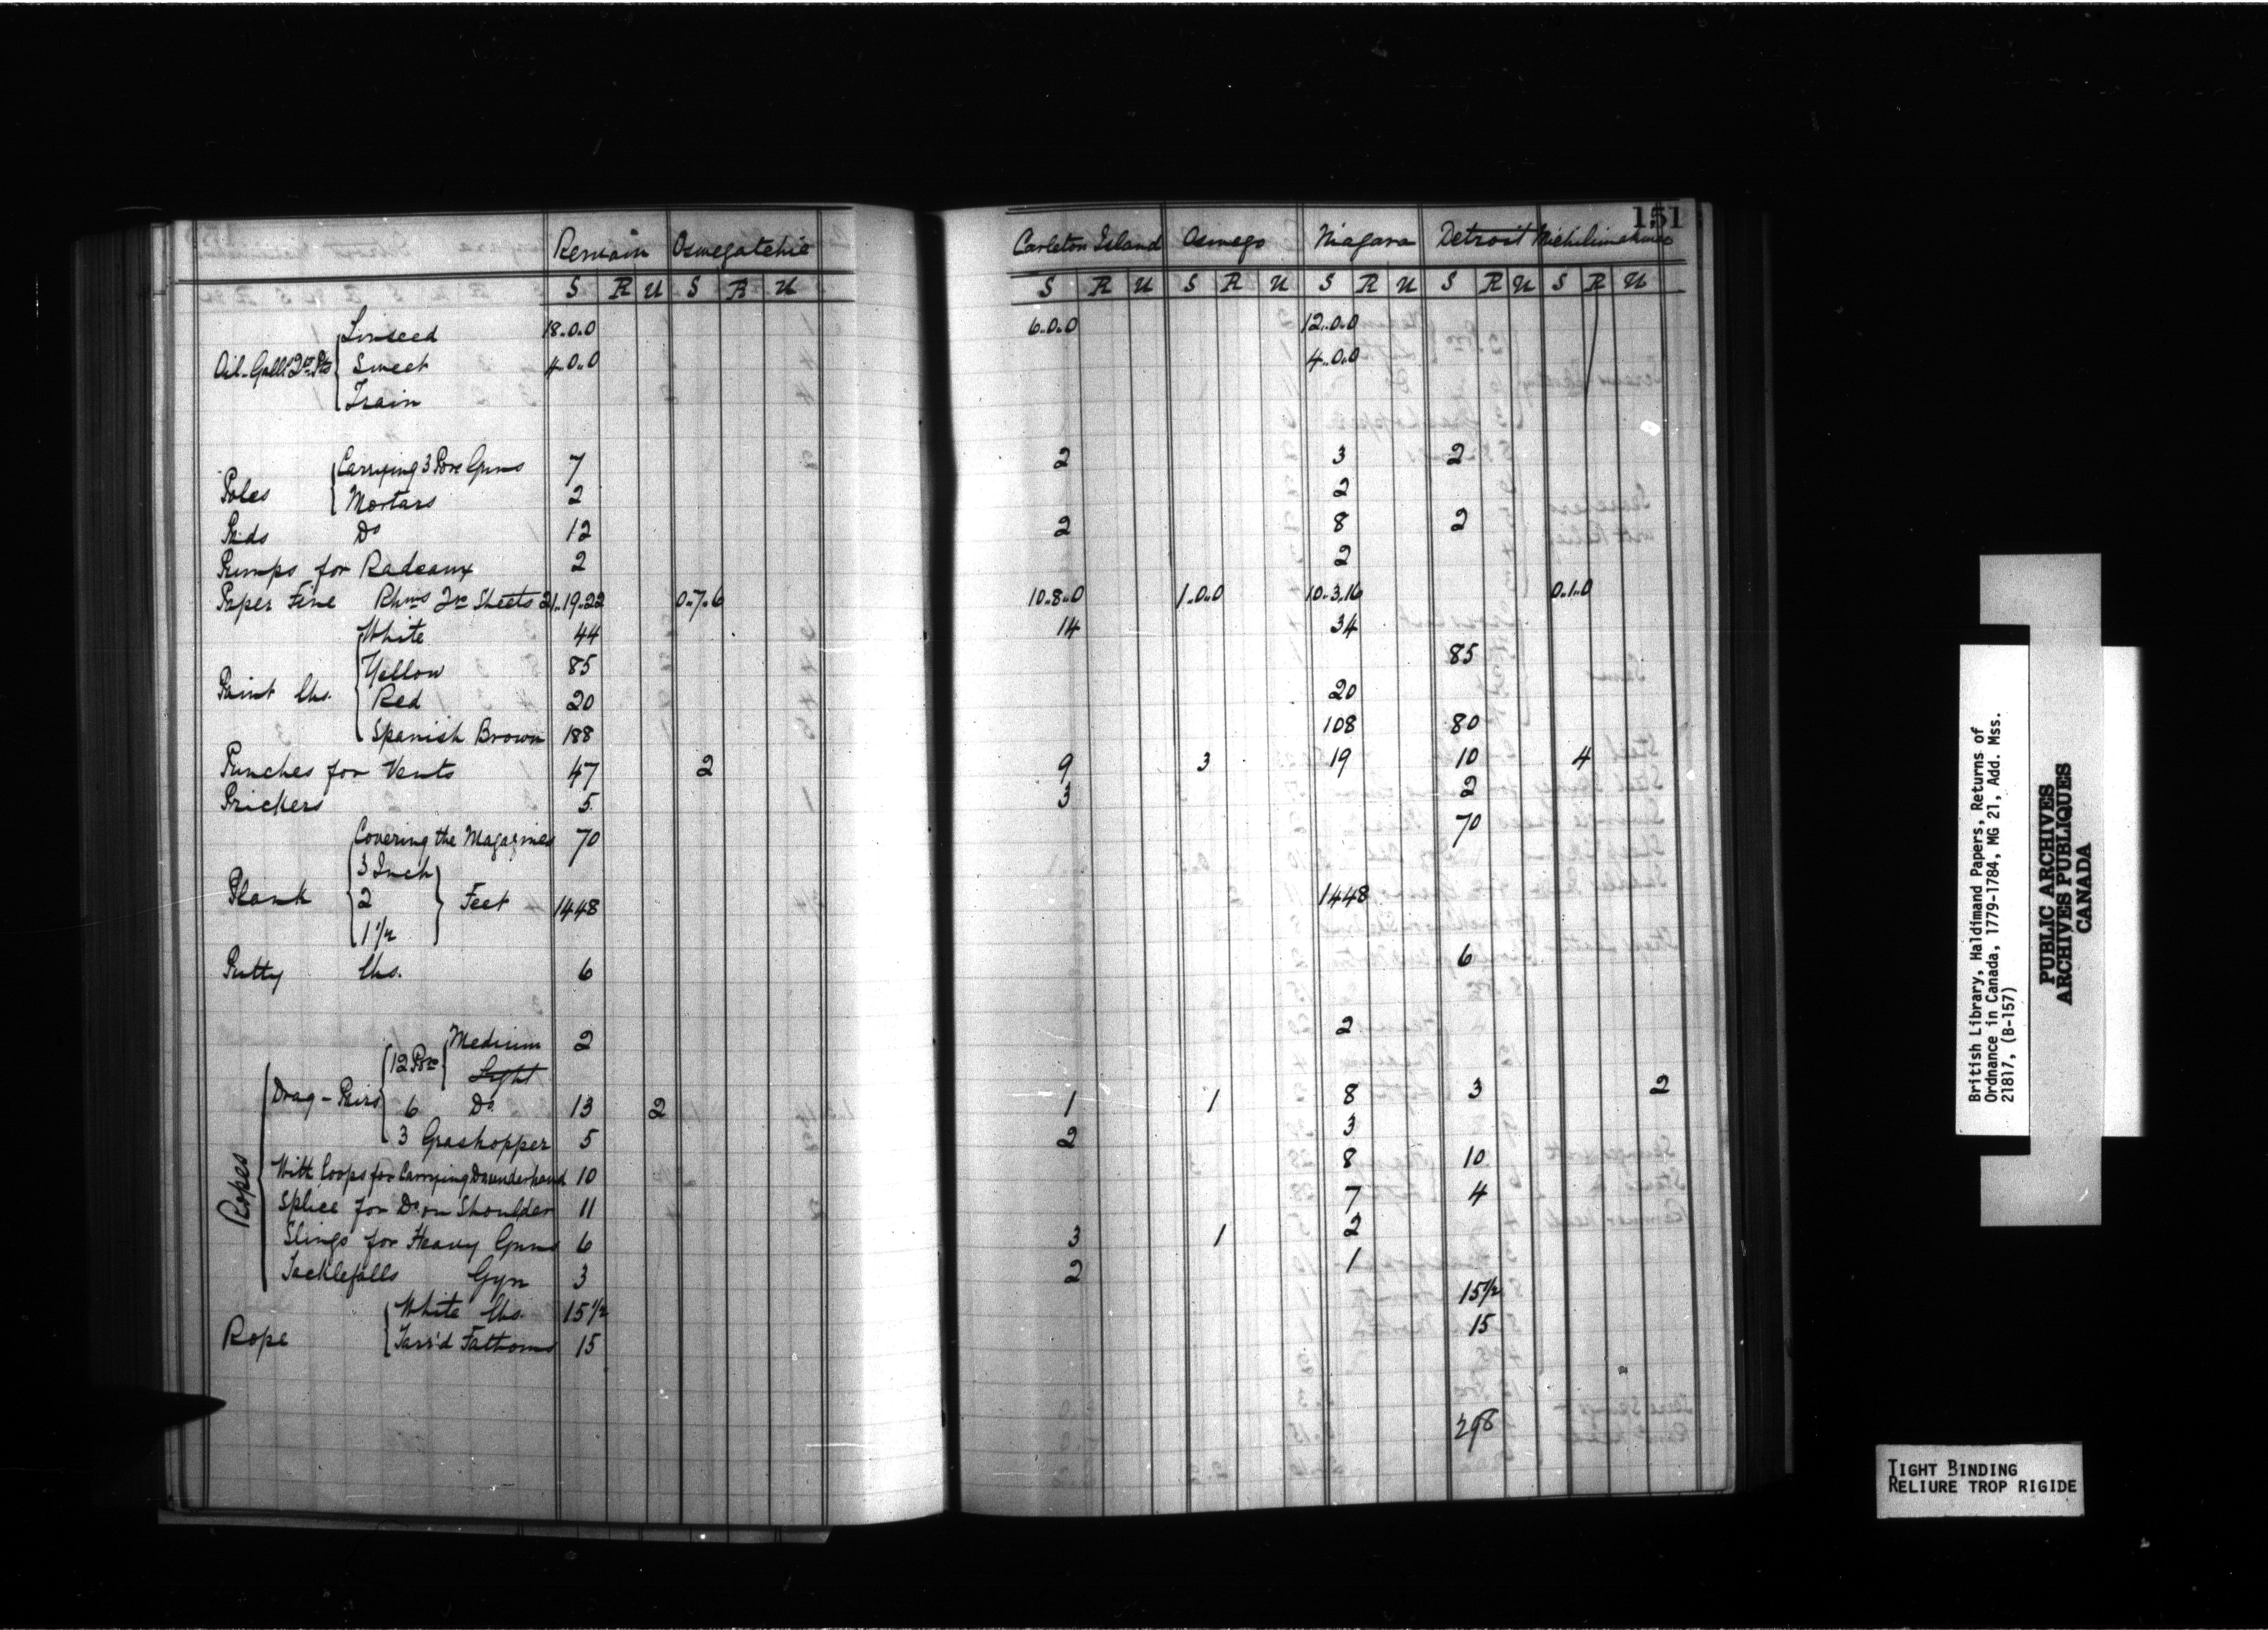 151
Remain Oswegatchie Carleton Island Oswego Niagara Detroit Michilimakinac
S R U S R U S R U S R U S R U S R U S R U
Linseed 18..0.0 6..0..0 12..0..0
Oil - Galls Qts Pts Sweet 4..0..0 4..0..0
Train
Carrying 3 Pors Guns 7 2 3 2
Poles Mortars 2 2
Do 12 2 8 2
Pumps for Radeaux 2 2
Paper Fine Rhms Qrs Sheets 21..19..22 0..7..6 10..8..0 1..0..0 10..3..16 0..1..0
White 44 14 34
Yellow 85 85
Paint lbs. Red 20 20
Spanish Brown 188 108 80
Punches for Vents 47 2 9 3 19 10 4
Prickers 5 3 2
Covering the Magazines 70 70
3 Inch
Plank 2 Feet 1448 1448
1 1/2
Putty lbs. 6 6
Medium 2 2
12 Por Light
Drag - Pairs 6 Do 13 2 1 1 8 3 2
3 Grashopper 5 2 3
With Loops for Carrying Do underhand 10 8 10
Ropes Splice for Do on Shoulder 11 7 4
Slings for Heavy Guns 6 3 1 2
Tacklefalls Gyn 3 2 1
White lbs. 15 1/2 15 1/2
Rope Tarr'd Fathoms 15 15
298
British Library, Haldimand Papers, Returns of
Ordnance in Canada, 1779-1784, MG 21, Add. Mss.
21817, (B-157)
PUBLIC ARCHIVES
ARCHIVES PUBLIQUES
CANADA
TIGHT BINDING
RELIURE TROP RIGIDE